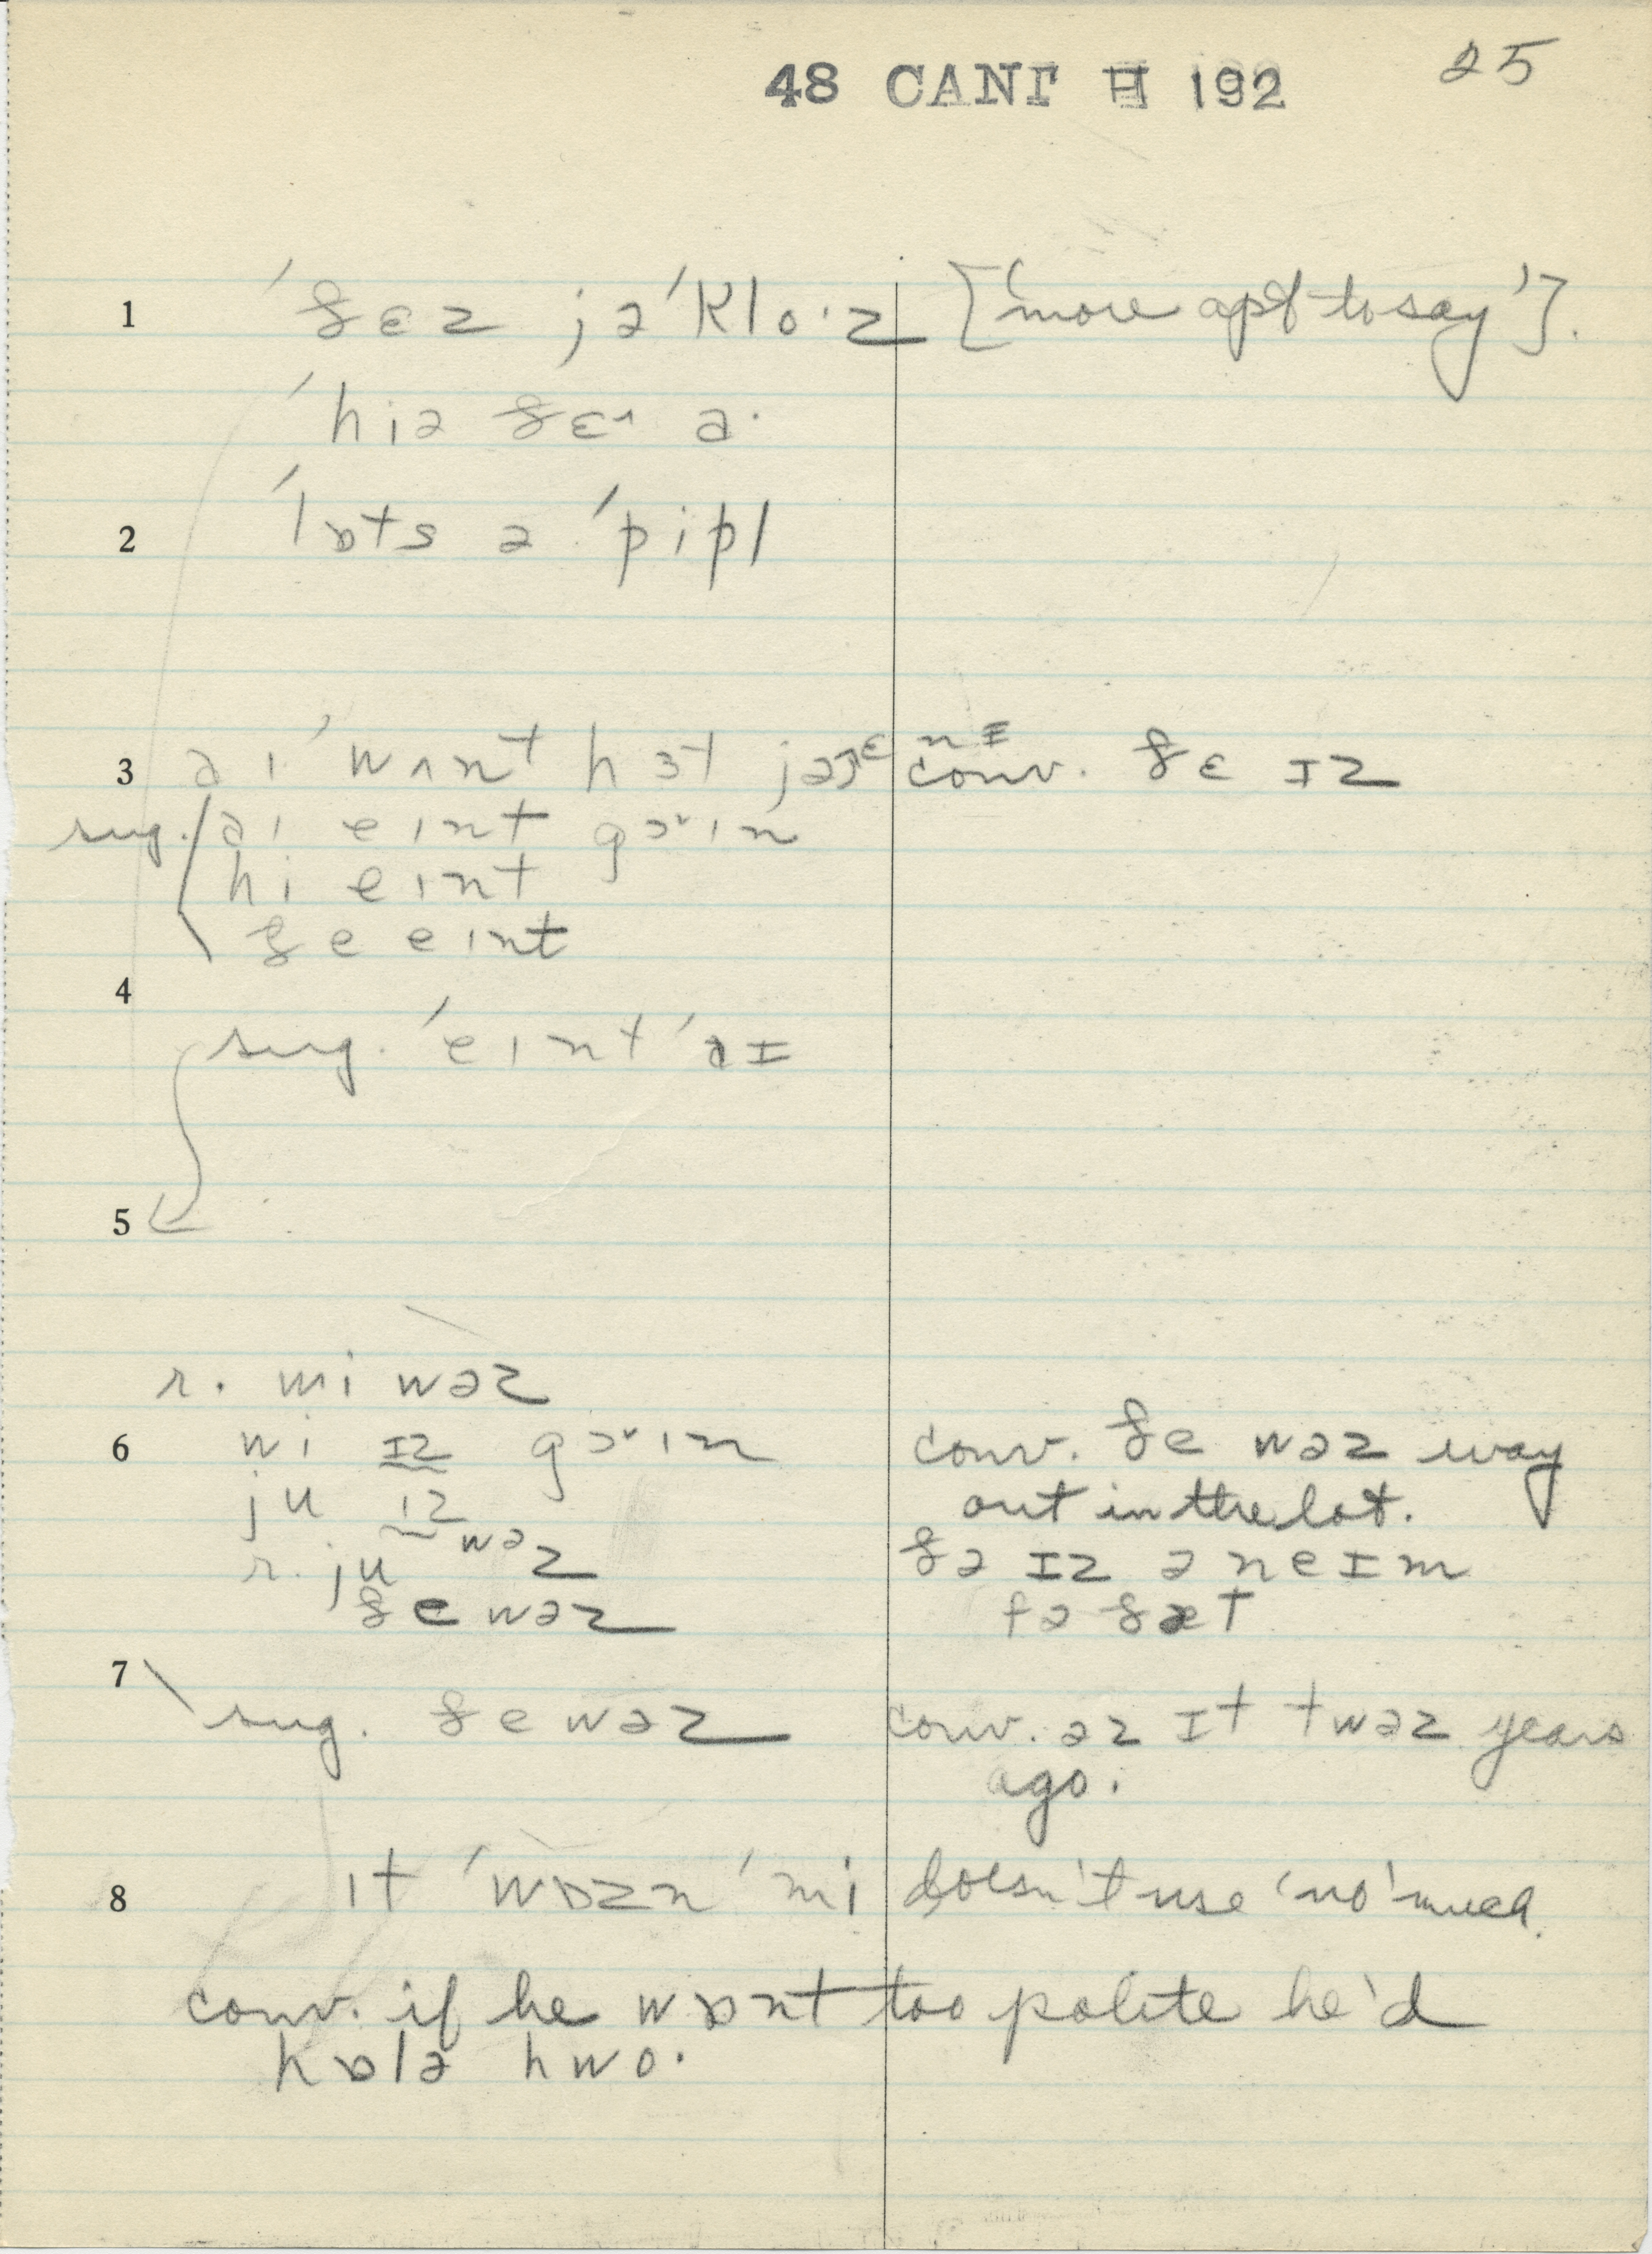 48 CANT H 192 25
1 ˈðɛz jəˈklo·z [‘more apt to say’].
ˈhiə ðɛɚ ə·
2 ˈlɒts ə ˈpipl
3 aɪ ˈwʌnt hɜt conv. ðɛ ɪz
sug. aɪ eɪnt goɪn
hi eɪnt
ðe eɪnt
4
sug. ˈeɪnt ˈaɪ
5
r. mi wəz
6 wi ɪz goɪn conv. ðe wəz way
ju ɪz out in the lot.
r. ju wəz ðə ɪz ə neɪm
ðe wəz fə ðæt
7
sug. ðe wəz conv. əz ɪt twəz years
ago.
8 ɪt ˈwɒzn ˈmi doesn't use ‘no’ much.
conv. if he wɒnt too polite he'd
hɒlə hwo·